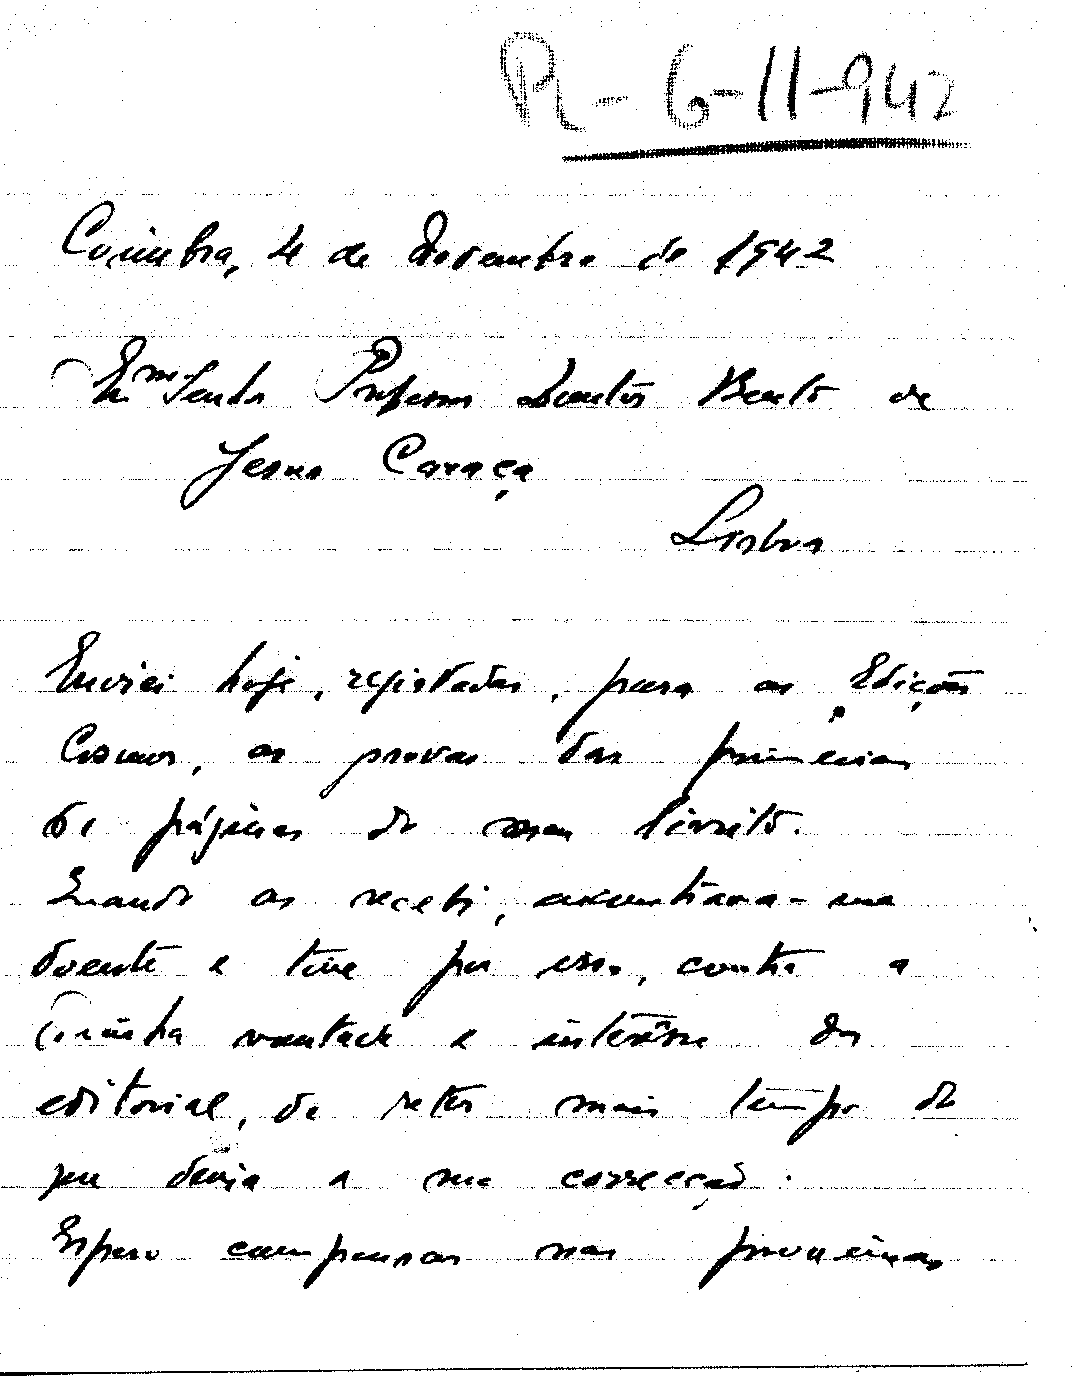 R - 6-11-942
Coimbra, 4 de Novembro de 1942
Exmº Senhor Professor Doutor Bento de
Jesus Caraça
Lisboa
Enviei hoje, registadas, para as Edições
Cosmos, as provas das primeiras
61 páginas do meu livrito.
Quando as recebi, encontrava-me
doente e tive por isso, contra a
minha vontade e interêsse da
editorial, de reter mais tempo do
que devia a sua correcção.
Espero compensar nas proximas